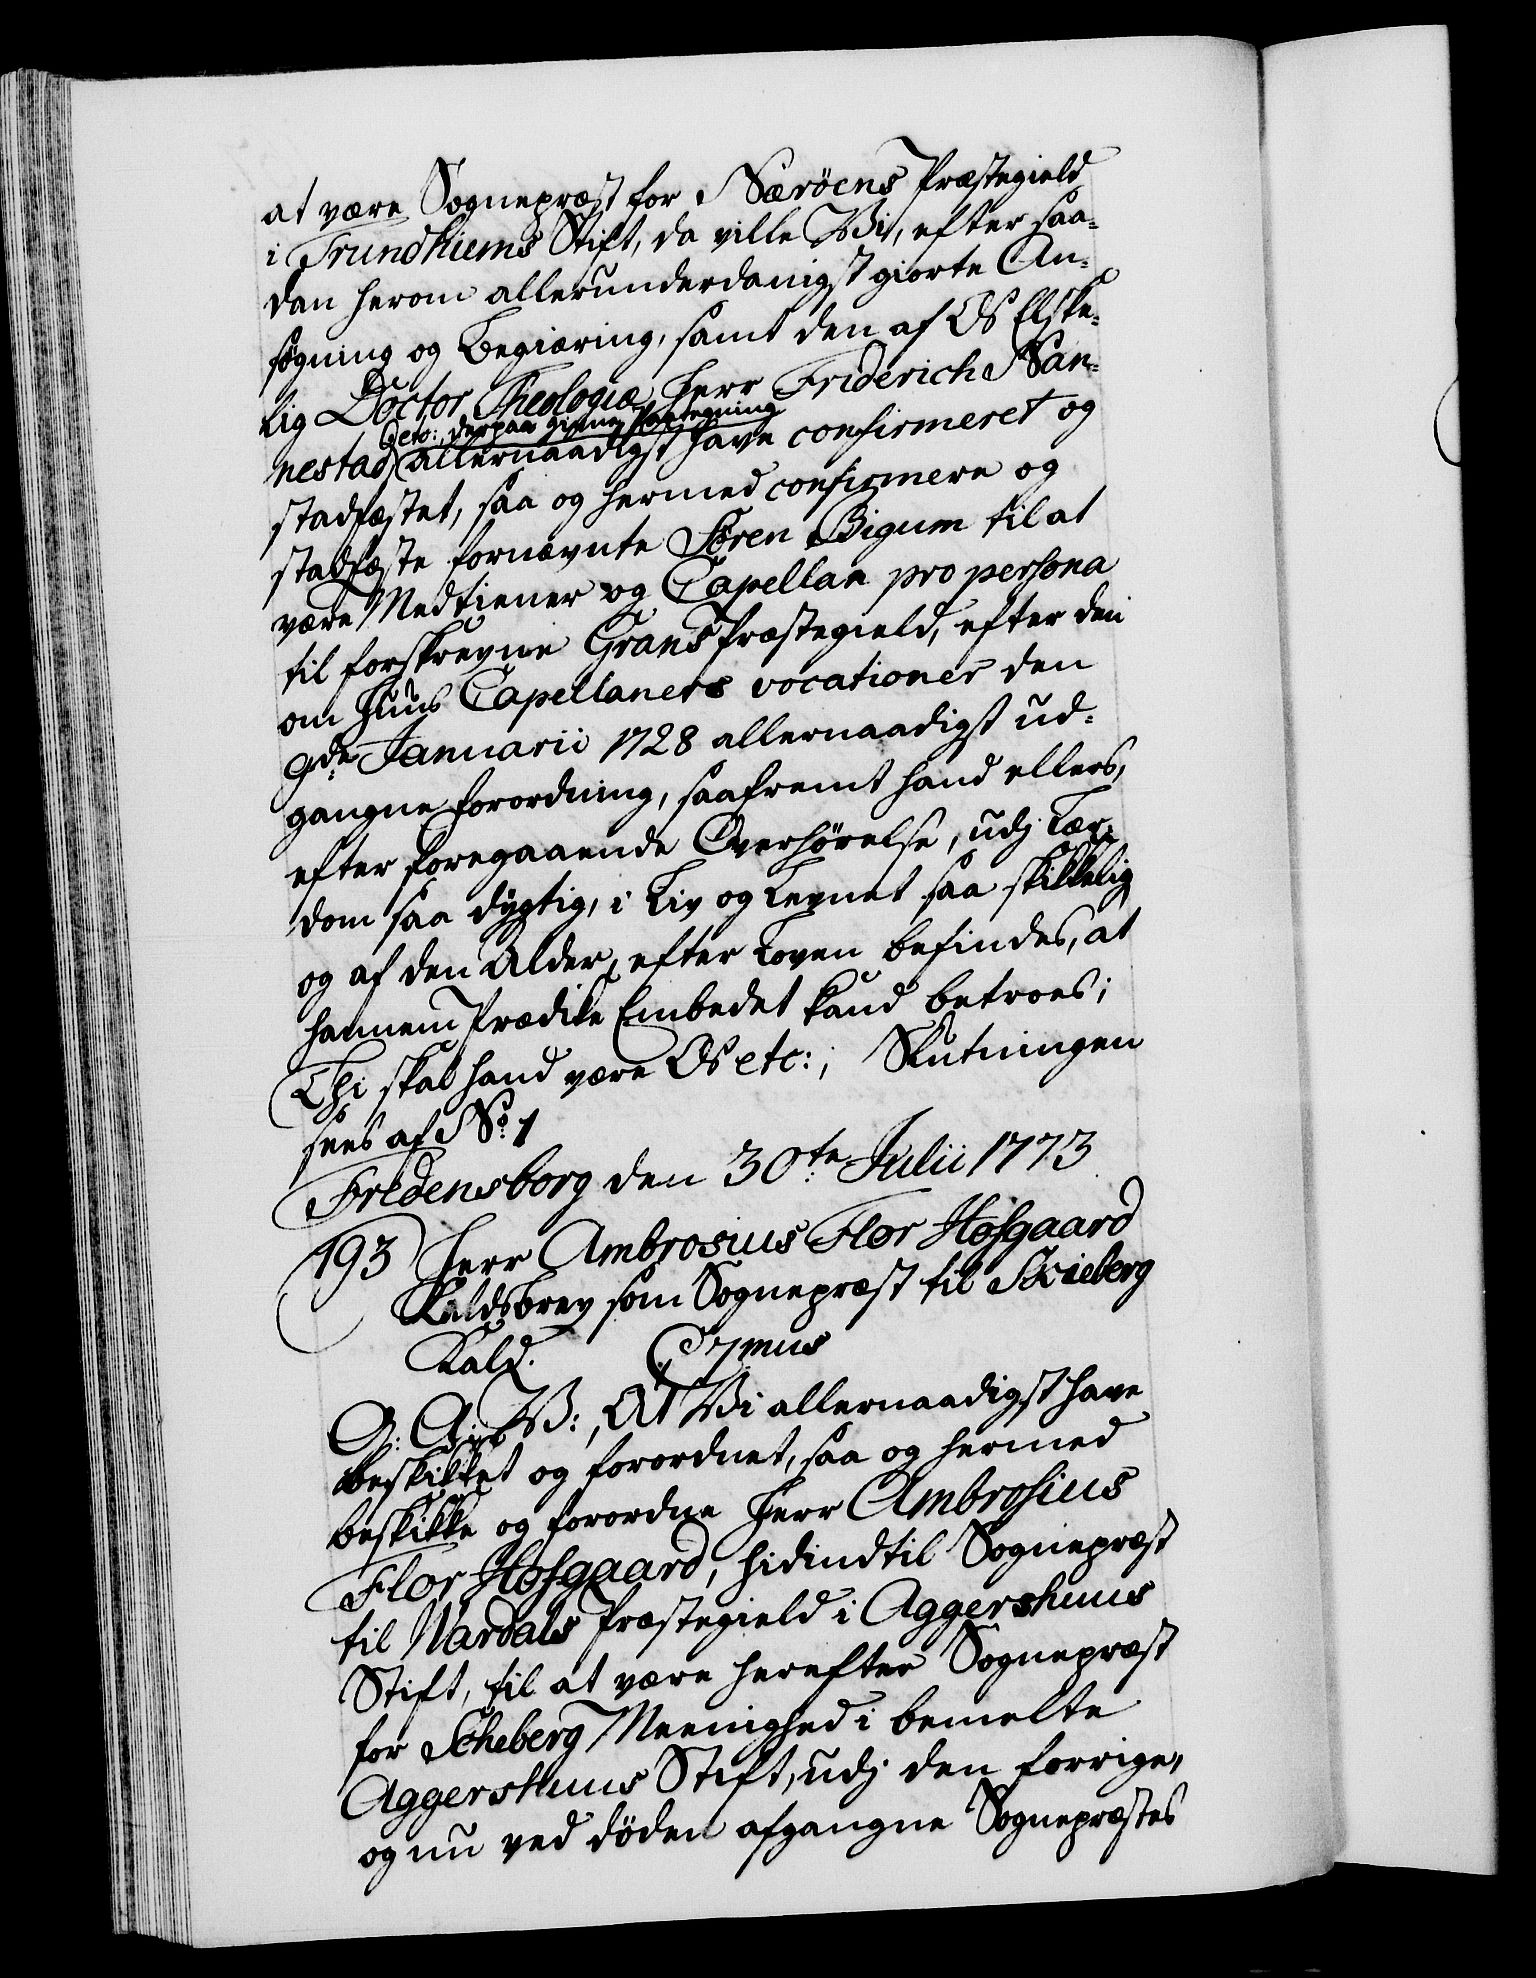 at være Sognepræst for Nærøens Præstegield
i Trundhiems Stift, da ville Vi, efter saa-
dan herom allerunderdanigst giorte An-
søgning og Begiæring, samt den af Os Elske-
lig Doctor Theologiæ Herr Friderich Nan-
etc: derpaa givne Paategning
nestad allernaadigst have confirmeret og
stadfæstet, saa og hermed confirmere og
stadfæste fornævnte Søren Bigum til at
være Medtiener og Capellan pro persona
til forskrevne Grans Præstegield, efter den
om Huus Capellaners vocationer den
9de Januarii 1728 allernaadigst ud-
gangne Forordning, saafremt hand ellers,
efter foregaaende Overhørelse, udj Lær-
dom saa dygtig, i Liv og Levnet saa skikkelig
og af den Alder, efter Loven befindes, at
hannem Prædike Embedet kand betroes;
Thi skal hand være Os etc:, Slutningen
sees af No: 1
Fredensborg den 30te Julii 1773
193 Herr Ambrosius Flor Hofgaard
Kaldsbrev som Sognepræst til Skieberg
Kald.
G: A: V:, At Vi allernaadigst have
beskikket og forordnet, saa og hermed
beskikke og forordne Herr Ambrosius
Flor Hofgaard, hidindtil Sognepræst
til Wardals Præstegield i Aggershuus
Stift, til at være herefter Sognepræst
for Scheberg Meenighed i bemelte
Aggershuus Stift, udj den forrige,
og nu ved døden afgangne Sognepræstes